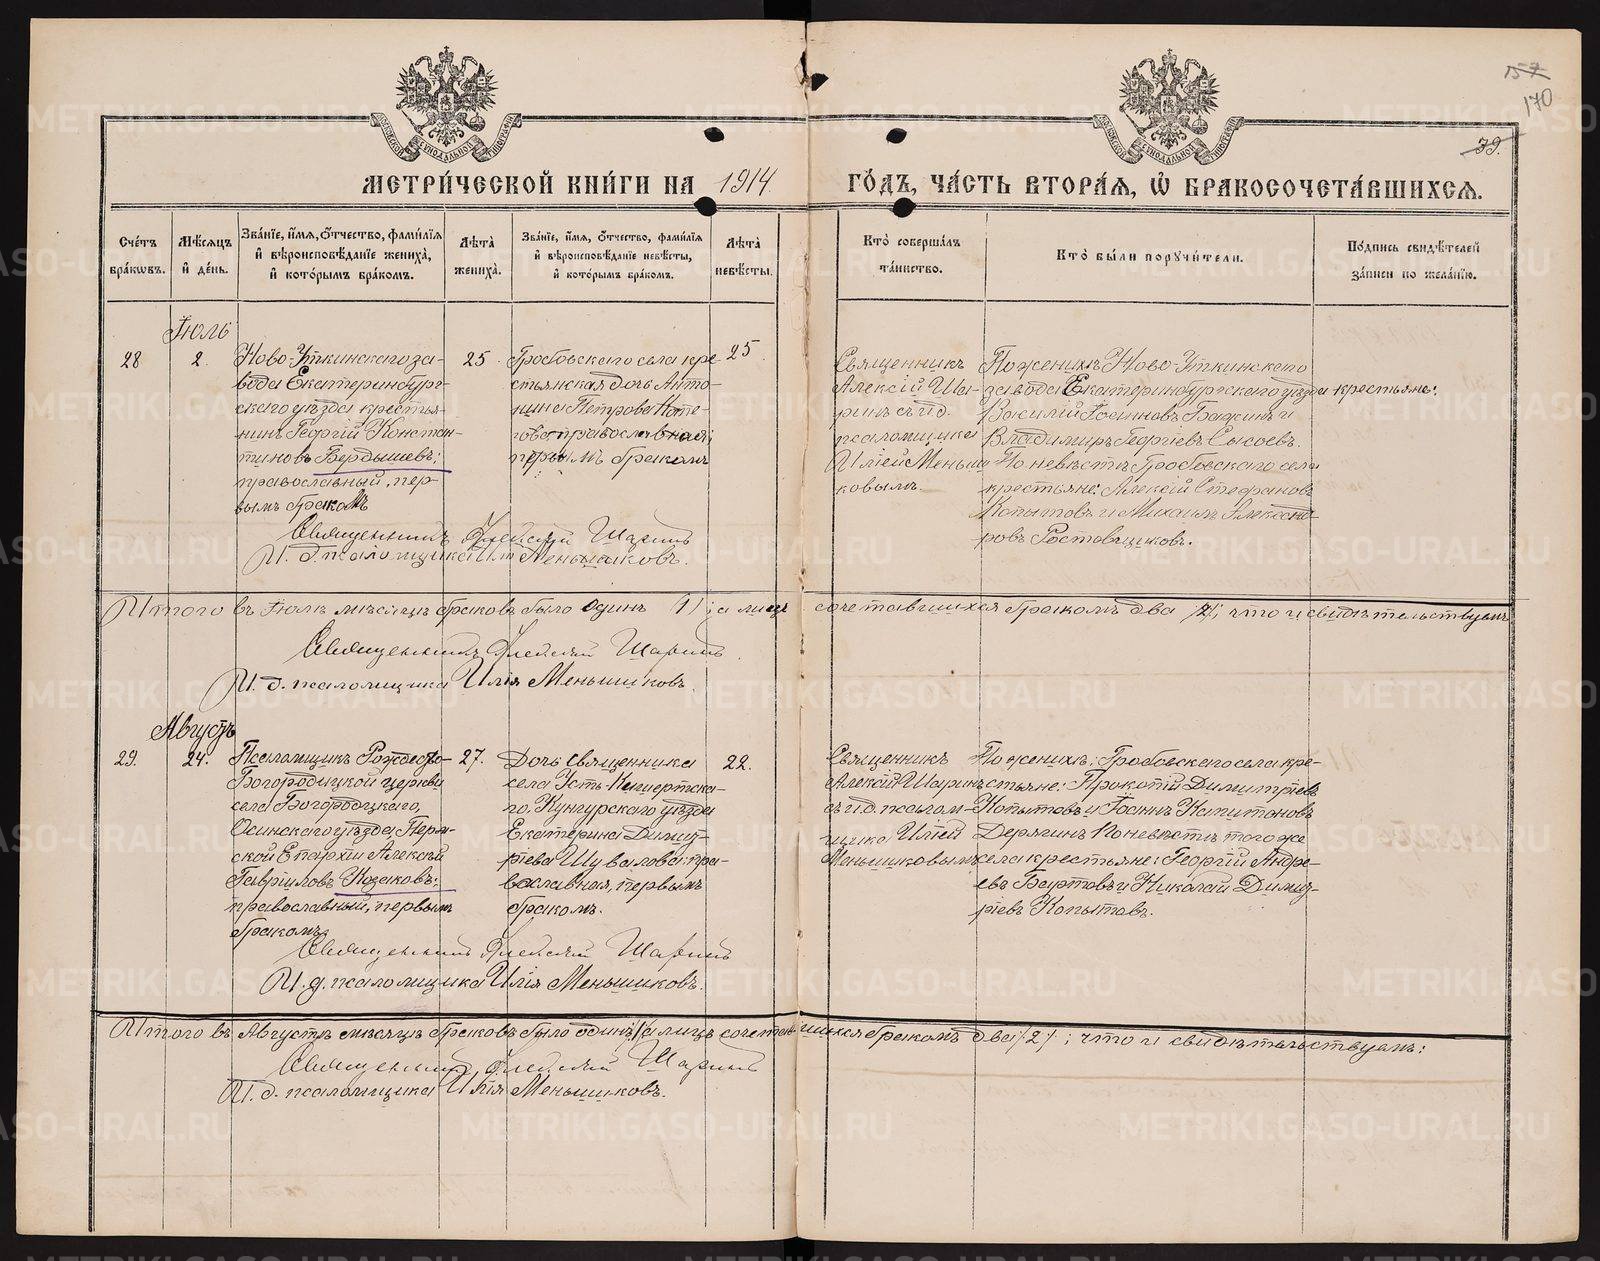 57
170
39.
МЕТРИ́ЧЕСКОЙ КНИ́ГИ НА 1914 ГО́ДЪ, ЧА́СТЬ ВТОРА́Я, Ѡ БРАКОСОЧЕТА́ВШИХСЯ.
Сче́тъ бра́ковъ.
Мѣ́сяцъ и де́нь.
Зва́нїе, и́мя, о́тчество, фами́лїя
и вѣроисповѣ́данїе жениха̀,
и кото́рымъ бра́комъ.
Лѣ́та жениха̀.
Зва́нїе, и́мя, о́тчество, фами́лїя
и вѣроисповѣ́данїе невѣ́сты,
и кото́рымъ бра́комъ.
Лѣ́та невѣ́сты.
Кто̀ соверша́лъ
та́инство.
Кто̀ бы́ли порꙋчи́тели.
По́дпись свидѣ́телей
за́писи по жела́нїю.
Іюль
28
2.
Ново-Уткинскаго за-
вода Екатеринбург-
скаго уѣзда крестья-
нинъ Георгій Констан-
тиновъ Бердышевъ;
православный, пер-
вымъ бракомъ
25.
Гробовскаго села кре-
стьянская дочь Анто-
нина Петрова
православная;
первымъ бракомъ
25.
Священникъ
Алексій Ша-
ринъ съ и.д.
псаломщика
Иліей Меньши
ковымъ.
По женихѣ Ново-Уткинскаго
завода Екатеринбургскаго уѣзда крестьяне:
Василій Іосифовъ Бажинъ и
Владимиръ Георгіевъ Сысоевъ.
По невѣстѣ Гробовскаго села
крестьяне: Алексій Стефановъ
Копытовъ и Михаилъ Александ-
ровъ Ростовщиковъ.
Священникъ Алексій Шаринъ
И. д. псаломщика Илія Меньшиковъ.
Итого въ Іюлѣ мѣсяцѣ браковъ было одинъ (1); а лицъ сочетавшихся бракомъ два /2/; что и свидѣтельствуемъ
Священникъ Алексій Шаринъ
И. д. псаломщика Илія Меньшиковъ.
Августъ
29.
24.
Псаломщикъ Рождество-
Богородицкой церкви
села Богородскаго,
Осинскаго уѣзда, Перм-
ской Епархіи Алексѣй
Гавріиловъ Козаковъ;
православный, первымъ
бракомъ.
27.
Дочь священника
села Усть-Кишертска-
го, Кунгурскаго уѣзда
Екатерина Димит-
ріева Шувалова: пра-
вославная, первымъ
бракомъ.
22.
Священникъ
Алексій Шаринъ
съ и.д. псалом-
щика Иліей
Меньшиковымъ
По женихѣ: Гробовскаго села кре-
стьяне: Прокопій Димитріевъ
Копытовъ и Іоаннъ Капитоновъ
Дерягинъ По невѣстѣ того же
села крестьяне: Георгій Андре-
евъ Бартовъ и Николай Димит-
ріевъ Копытовъ.
Священникъ Алексій Шаринъ
И. д. псаломщика Илія Меньшиковъ.
Итого въ Августѣ мѣсяцѣ браковъ было одинъ /1/ а лицъ сочетавшихся бракомъ два /2/; что и свидѣтельствуемъ:
Священникъ Алексій Шаринъ
И. д. псаломщика Илія Меньшиковъ.
METRIKI.GASO-URAL.RU